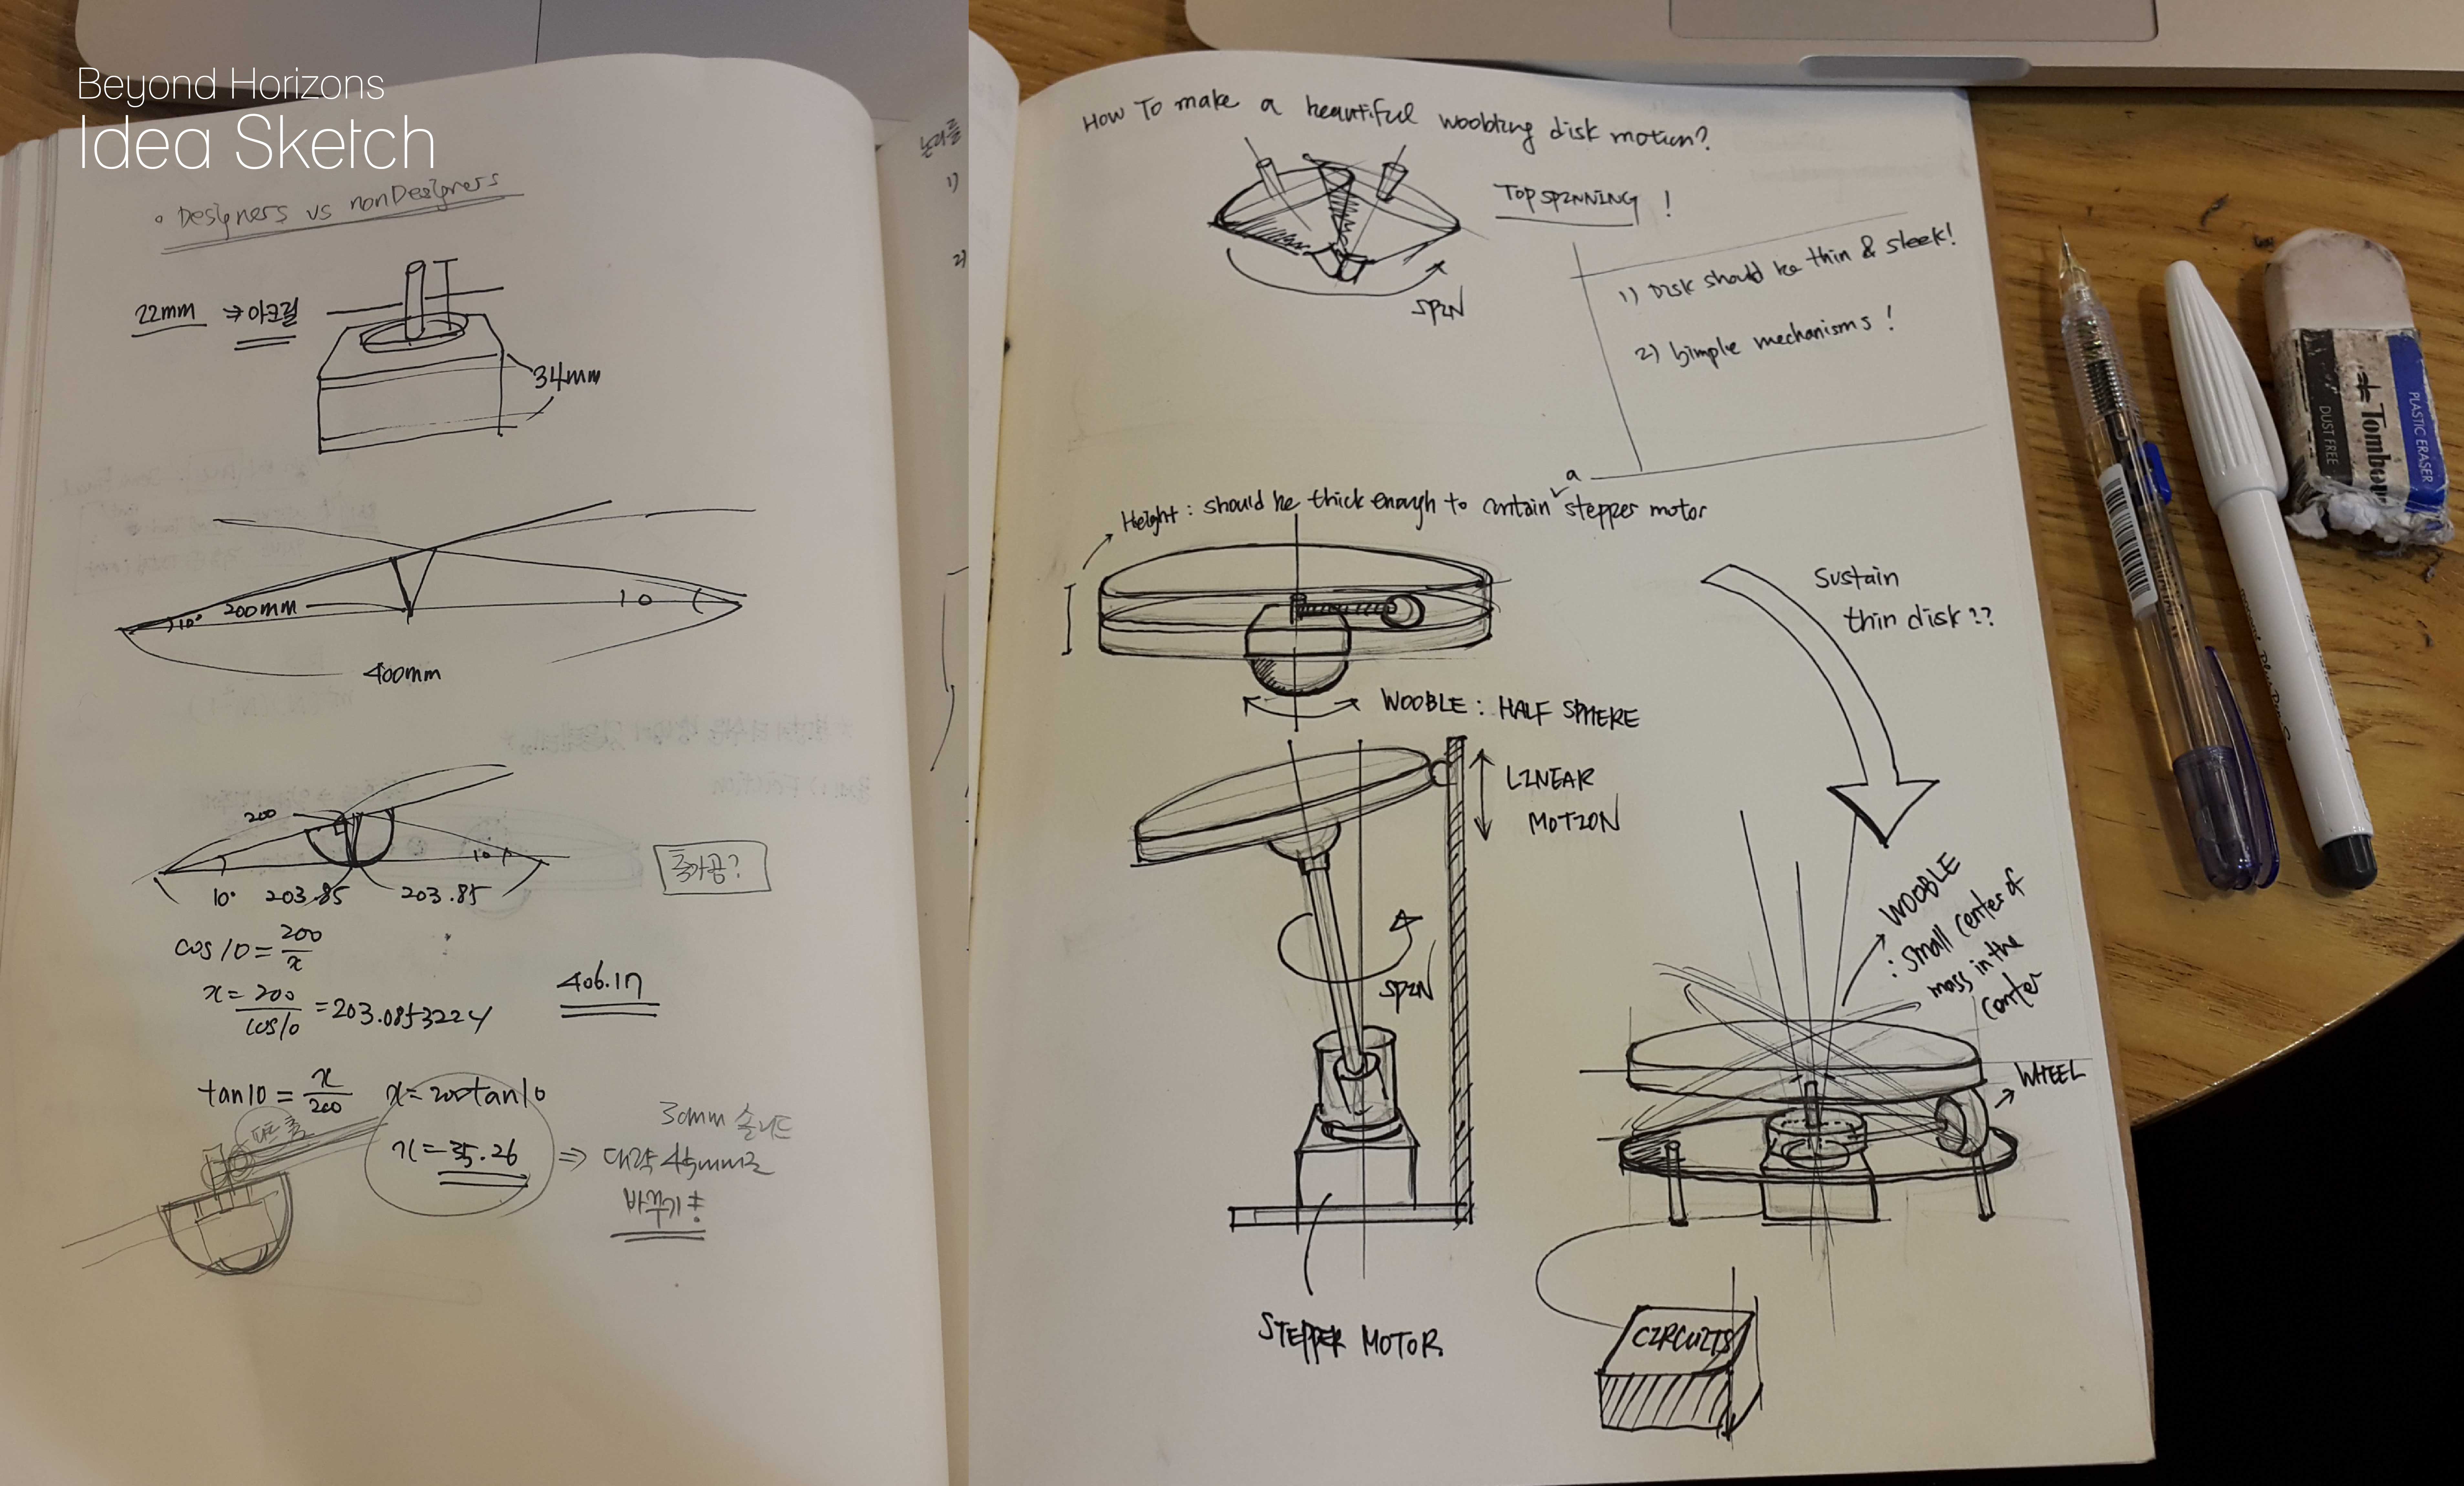 Beyond Horizons
Idea Sketch
• Designers vs nonDesigners
22mm ⇒ 아크릴
34mm
200mm
10°
10
400mm
200
10
10° 203.85 203.85
축가공?
cos10 = 200/x
x = 200/cos10 = 203.0853224
406.17
tan10 = x/200 x = 200tan10
x = 35.26 ⇒
30mm 솔리드
대략 45mm로
바꾸기!
1)
2)
How To make a beautiful woobling disk motion?
TOP SPINNING !
SPIN
1) Disk should be thin & sleek!
2) Simple mechanisms !
a
Height : should be thick enough to contain stepper motor
Sustain
thin disk ??
WOOBLE : HALF SPHERE
LINEAR
MOTION
SPIN
WOOBLE
: small center of
mass in the
center
WHEEL
STEPPER MOTOR
CIRCUITS
PLASTIC ERASER
Tombow
DUST FREE